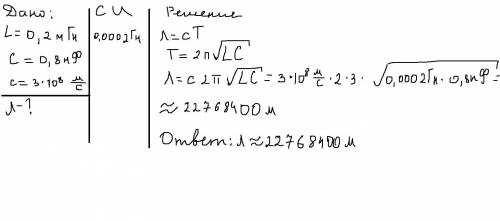 Дано:
L = 0,2 мГн
C = 0,8 пФ
c = 3·10⁸ м/с
λ - ?
СИ
0,0002 Гн
Решение
λ = cT
T = 2π√LC
λ = c 2π√LC = 3·10⁸ м/с · 2·3· √0,0002Гн · 0,8пФ =
≈ 22768400 м
Ответ: λ ≈ 22768400 м